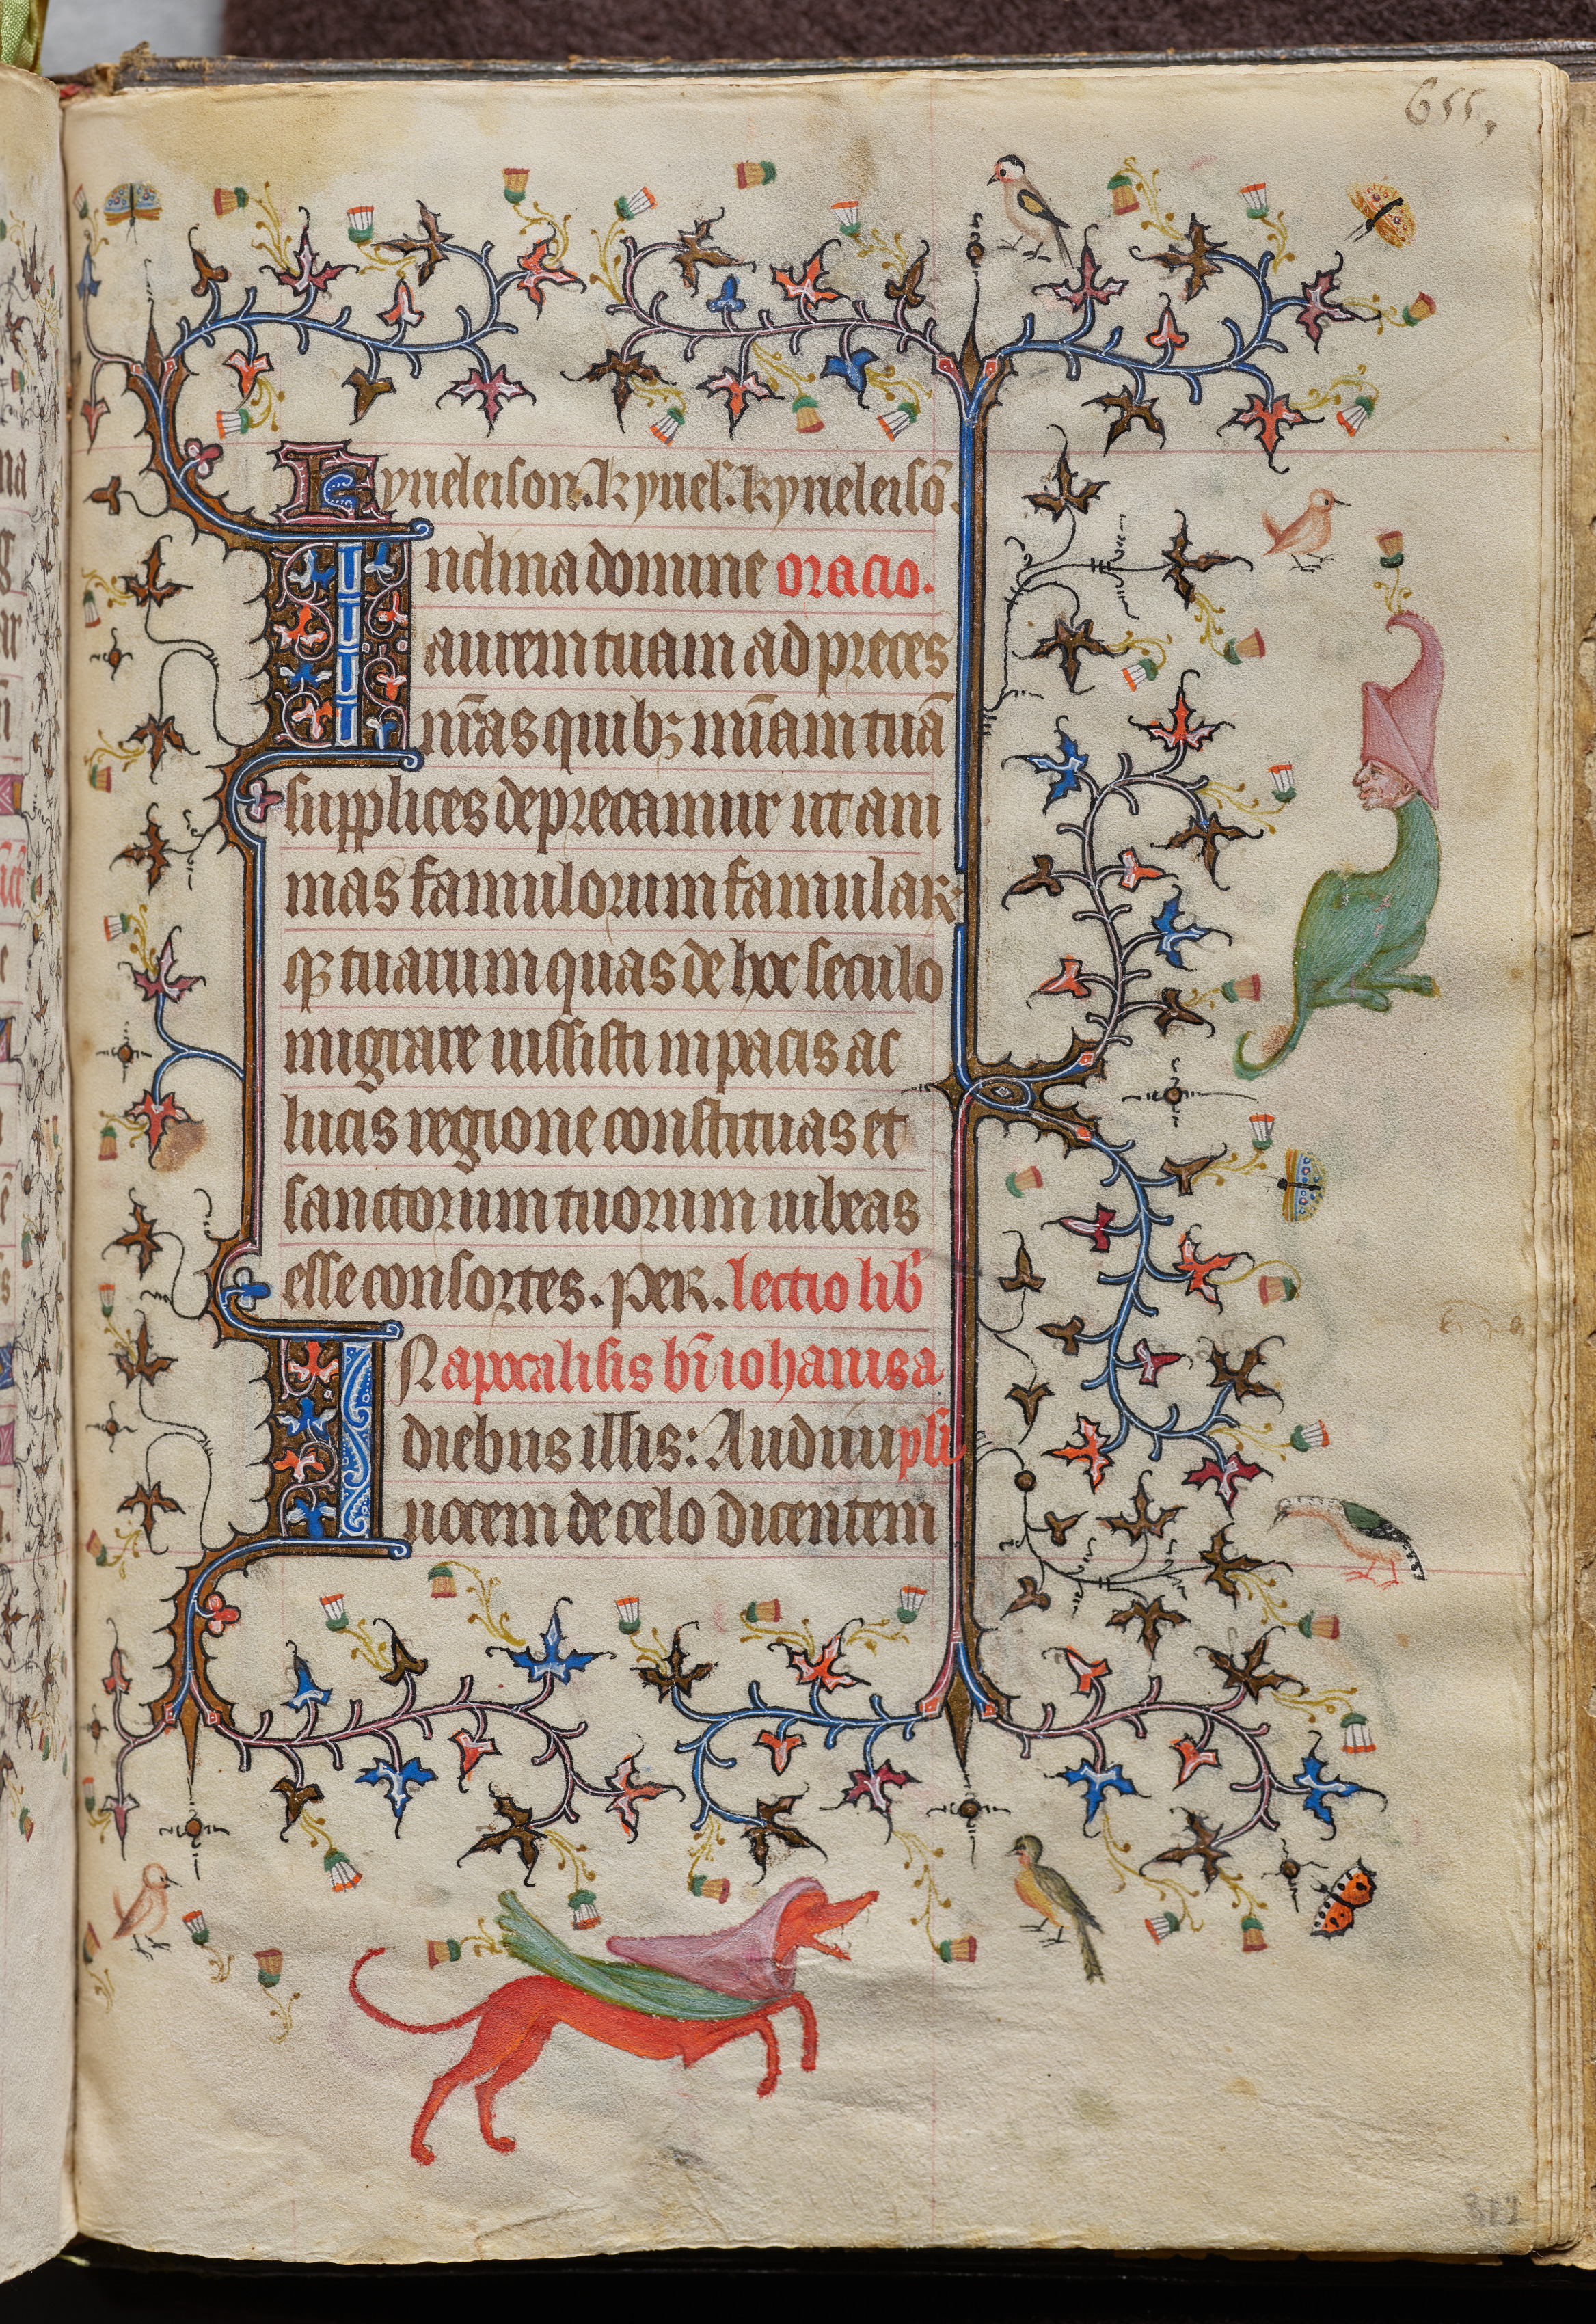 655.
Kyrieleison. kyriel'. kyrieleisō.
Inclina domine oracio.
aurem tuam ad preces
nr̄as quibꝫ mīam tuā
supplices deprecamur ut ani
mas famulorum famulaꝝ
qꝫ tuarum quas de hoc seculo
migrare iussisti in pacis ac
lucis regione constituas et
sanctorum tuorum iubeas
esse consortes. per. lectio lib'
IN apocalisis bī iohannis a
diebus illis: Audiui pli
uocem de celo dicentem